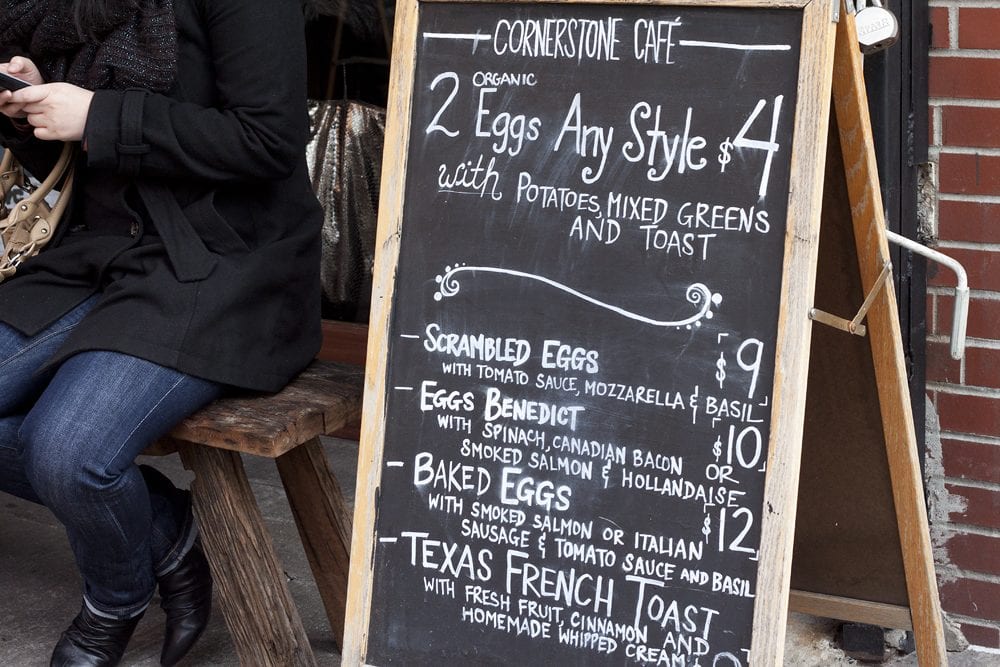 CORNERSTONE CAFÉ
2 ORGANIC Eggs Any Style $4
with POTATOES, MIXED GREENS
AND TOAST
- SCRAMBLED EGGS $9
WITH TOMATO SAUCE, MOZZARELLA & BASIL
- EGGS BENEDICT $10
WITH SPINACH, CANADIAN BACON OR
SMOKED SALMON & HOLLANDAISE
- BAKED EGGS $12
WITH SMOKED SALMON OR ITALIAN
SAUSAGE & TOMATO SAUCE AND BASIL
- TEXAS FRENCH TOAST
WITH FRESH FRUIT, CINNAMON AND
HOMEMADE WHIPPED CREAM